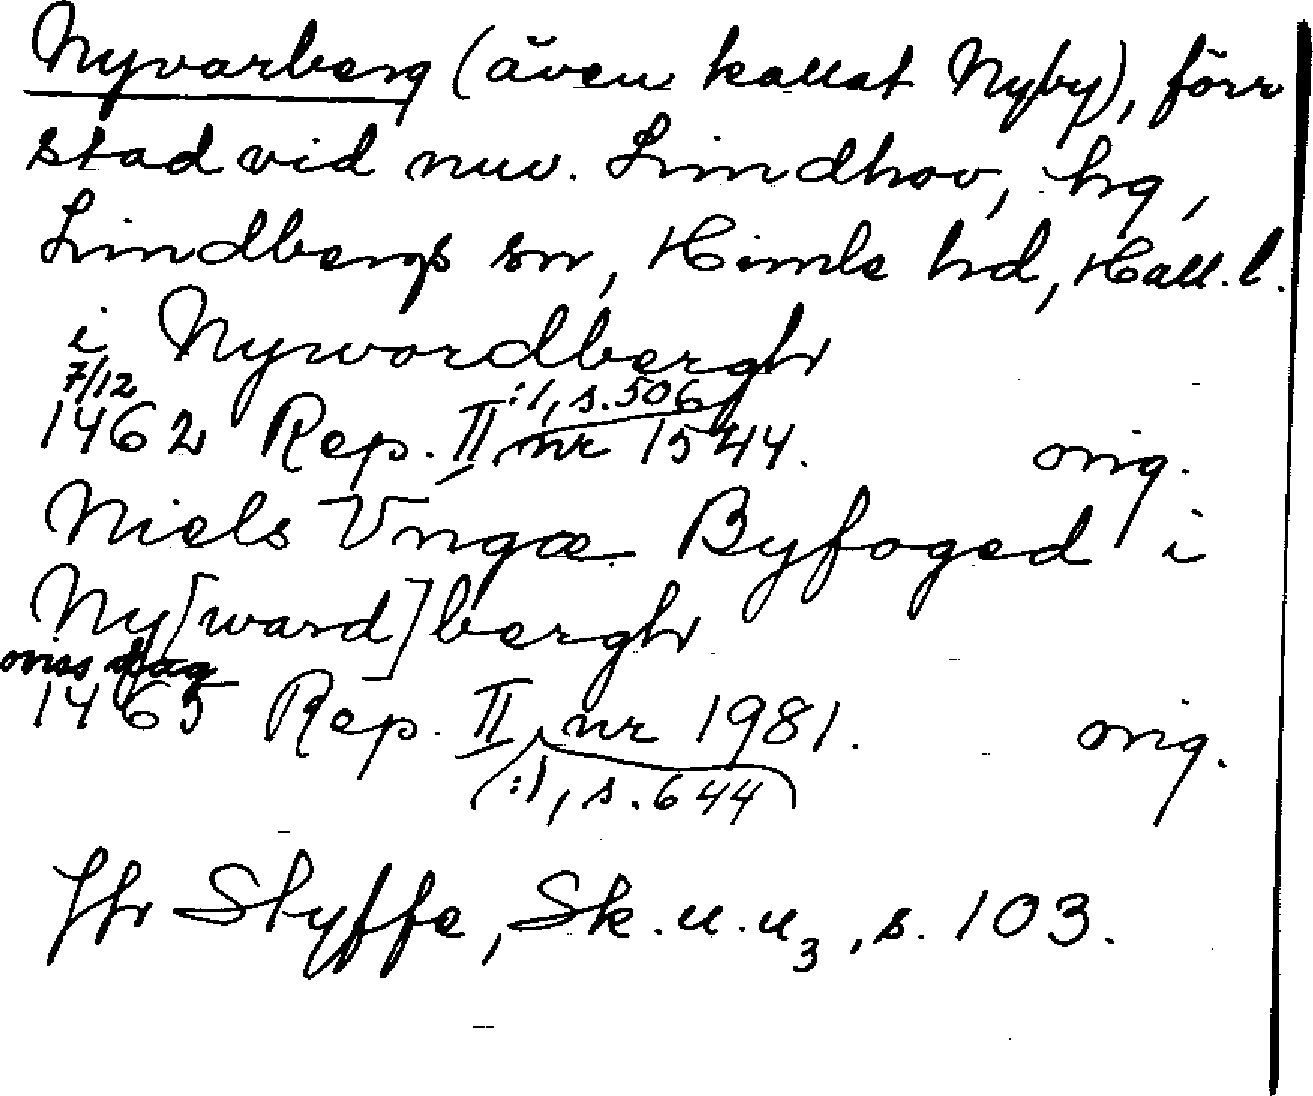 Nyvarberg (även kallat Nyby), förr
stad vid nuv. Lindhov, hg,
Lindbergs sn, Himle hd, Hall. l.
i Nywordbergh
7/12
1462 Rep. II :1, s. 506, nr 1544. orig.
Niels Vngæ Byfoged i
Ny[ward]bergh
oviss dag
1465 Rep. II, nr 1981. orig.
(:1, s. 644)
Jfr Styffe, Sk. u. u3, s. 103.